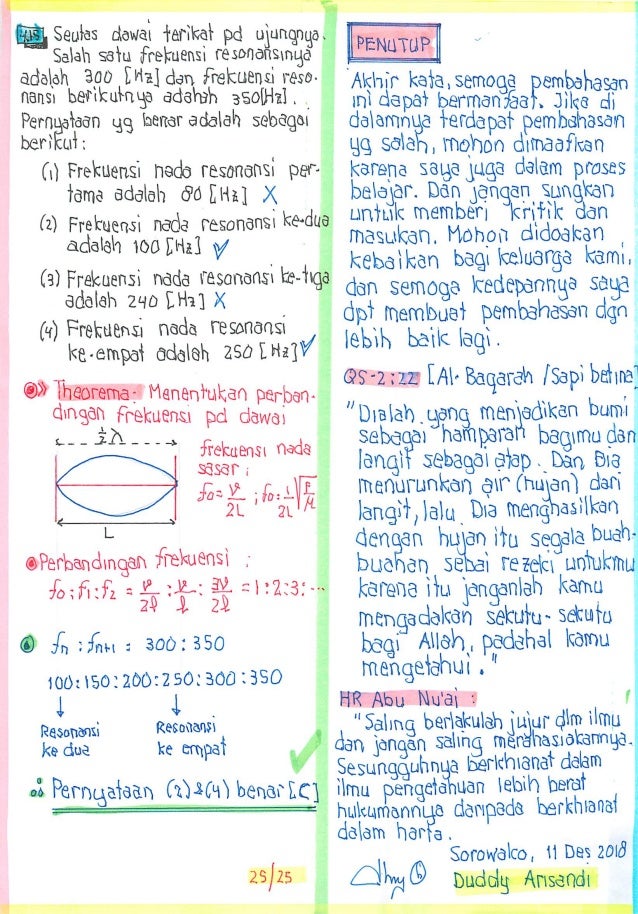 415 Seutas dawai terikat pd ujungnya.
Salah satu frekuensi resonansinya
adalah 300 [Hz] dan frekuensi reso-
nansi berikutnya adahah 350[Hz].
Pernyataan yg benar adalah sebagai
berikut:
(1) Frekuensi nada resonansi per-
tama adalah 80 [Hz] X
(2) Frekuensi nada resonansi ke-dua
adalah 100 [Hz] ✓
(3) Frekuensi nada resonansi ke-tiga
adalah 240 [Hz] X
(4) Frekuensi nada resonansi
ke-empat adalah 250 [Hz] ✓
Theorema: Menentukan perban-
dingan frekuensi pd dawai
½λ
frekuensi nada
sasar;
f₀ = v/2L ; f₀ = 1/2L √(F/μ)
L
Perbandingan frekuensi :
f₀ : f₁ : f₂ = v/2l : v/l : 3v/2l = 1:2:3: ...
fn : fn+1 = 300 : 350
100:150:200:250:300:350
↓ ↓
Resonansi Resonansi
ke dua ke empat
∴ Pernyataan (2) & (4) benar [C]
✓
25/25
PENUTUP
Akhir kata, semoga pembahasan
ini dapat bermanfaat. Jika di
dalamnya terdapat pembahasan
yg salah, mohon dimaafkan
karena saya juga dalam proses
belajar. Dan jangan sungkan
untuk memberi kritik dan
masukan. Mohon didoakan
kebaikan bagi keluarga kami,
dan semoga kedepannya saya
dpt membuat pembahasan dgn
lebih baik lagi.
QS-2:22 [Al-Baqarah /Sapi betina]
"Dialah yang menjadikan bumi
sebagai hamparan bagimu dan
langit sebagai atap. Dan Dia
menurunkan air (hujan) dari
langit, lalu Dia menghasilkan
dengan hujan itu segala buah-
buahan sebai rezeki untukmu
karena itu janganlah kamu
mengadakan sekutu-sekutu
bagi Allah, padahal kamu
mengetahui."
HR Abu Nu'ai :
"Saling berlakulah jujur dlm ilmu
dan jangan saling merahasiakannya.
Sesungguhnya berkhianat dalam
ilmu pengetahuan lebih berat
hukumannya daripada berkhianat
dalam harta.
Sorowako, 11 Des 2018
Duddy Arisandi